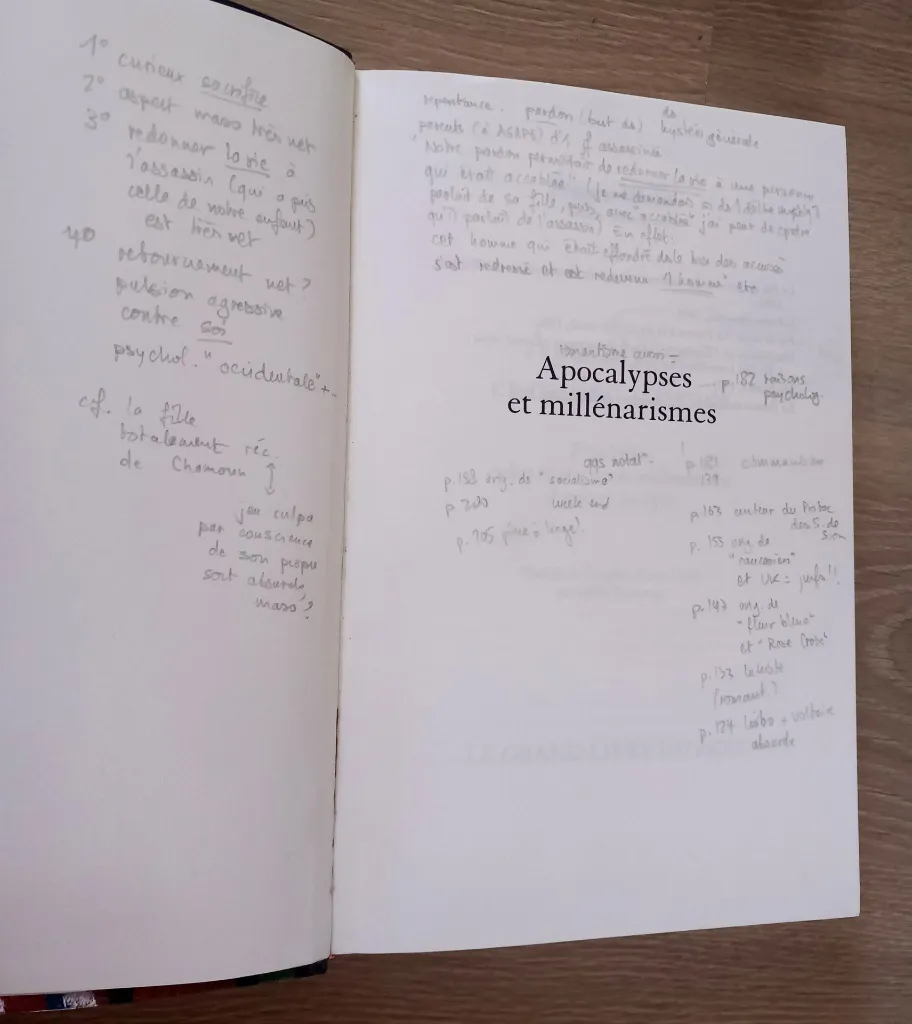 1° curieux sacrifice
2° aspect maso très net
3° redonner la vie à
l'assassin (qui a pris
celle de notre enfant)
est très net
4° retournement net?
pulsion agressive
contre soi
psychol. "occidentale" + -
cf. la fille
totalement réc.
de Chamoun
↕
jeu culpa
par conscience
de son propre
sort absurde,
maso?
repentance. pardon (but de) hystérie générale
de
parents (à ASAPE) d'1 f assassinée
"Notre pardon permettait de redonner la vie à une personne
qui était accablée" (je me demandais si de
parlait de sa fille, puis, avec "accablée" j'ai peur de
qu'il parlait de l'assassin) En effet:
cet homme qui était effondré ds le box des accusés
s'est redressé et est redevenu "1 homme" etc
Apocalypses
et millénarismes
p. 182 raisons
psycholog.
qqs notat°.
p. 153 orig. de "socialisme"
week end
p. 163 auteur du Protoc
des S. de
Sion
p. 155 orig. de
et UK = juifs!!
p. 147 orig. de
"fleur bleue"
et "Rose Croix"
(romant?
+ Voltaire
absurde